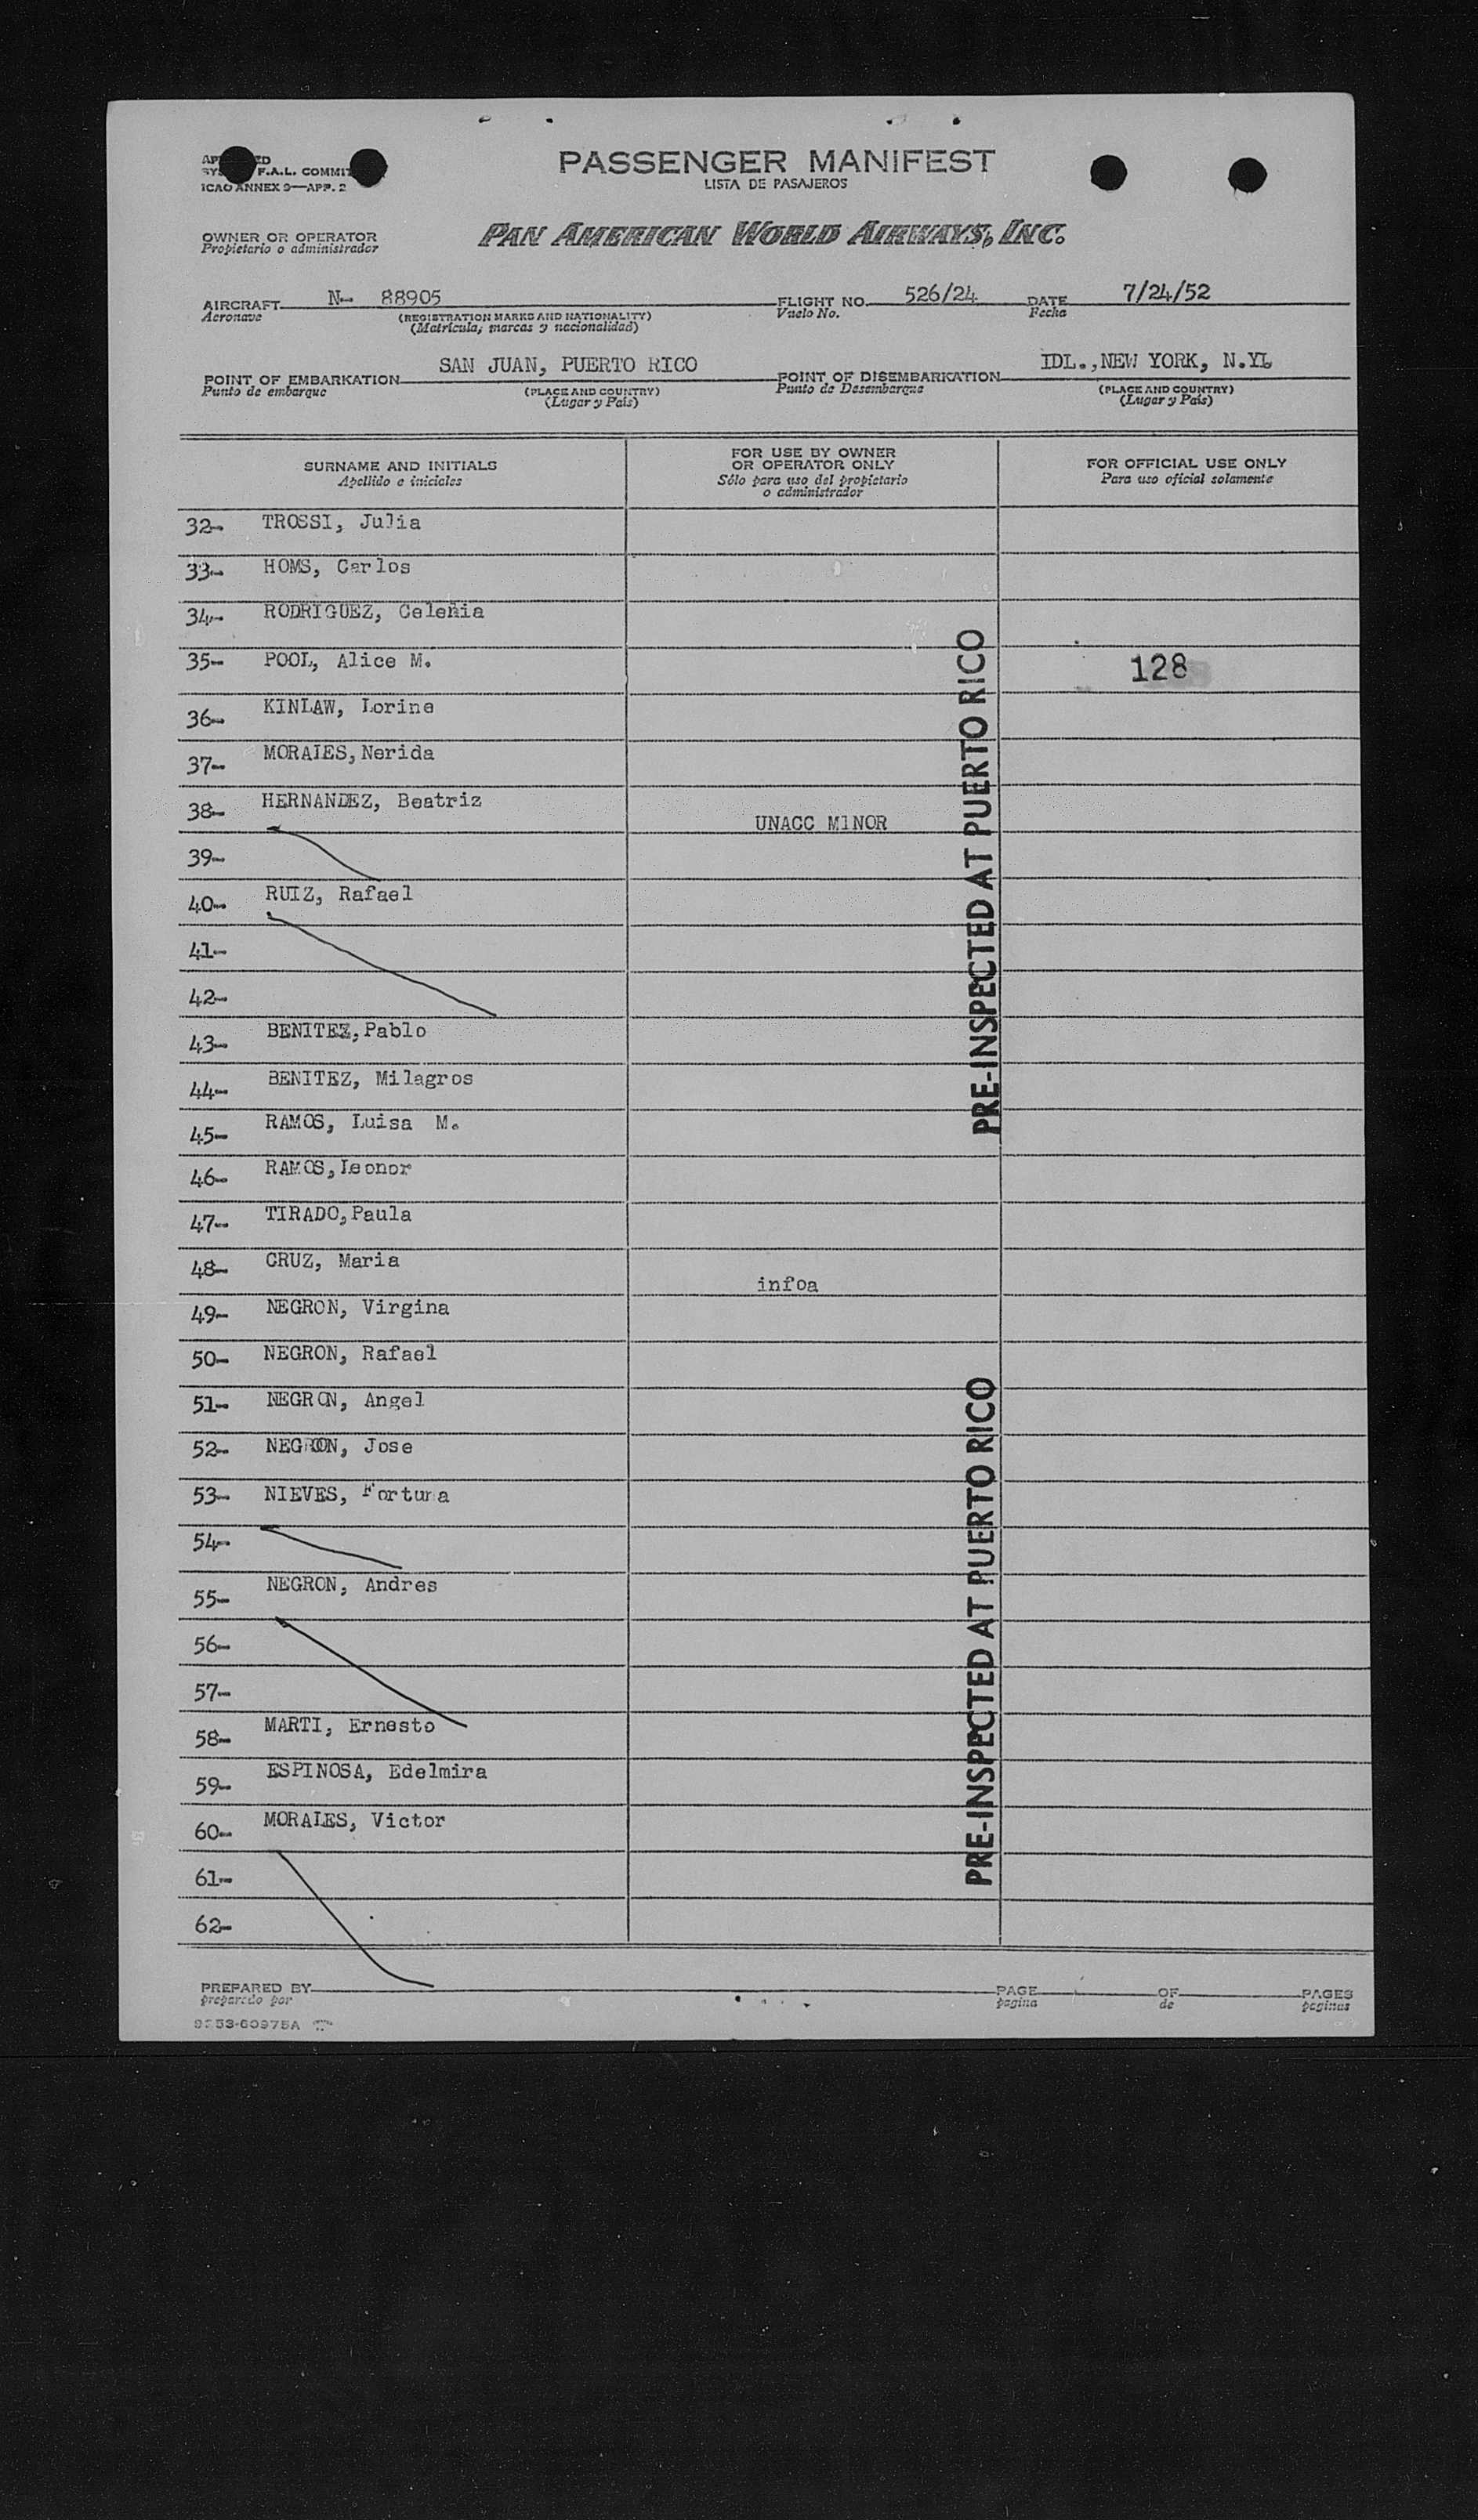 PASSENGER MANIFEST
LISTA DE PASAJEROS
F.A.L.
ICAO ANNEX 9—APP. 2
OWNER OR OPERATOR
Propietario o administrador
PAN AMERICAN WORLD AIRWAYS, INC.
AIRCRAFT N- 88905 FLIGHT NO. 526/24 DATE 7/24/52
Aeronave (REGISTRATION MARKS AND NATIONALITY) Vuelo No. Fecha
(Matrícula, marcas y nacionalidad)
POINT OF EMBARKATION SAN JUAN, PUERTO RICO POINT OF DISEMBARKATION IDL.,NEW YORK, N.Y.
Punto de embarque (PLACE AND COUNTRY) Punto de Desembarque (PLACE AND COUNTRY)
(Lugar y País) (Lugar y País)
SURNAME AND INITIALS
Apellido e iniciales
FOR USE BY OWNER
OR OPERATOR ONLY
Sólo para uso del propietario
o administrador
FOR OFFICIAL USE ONLY
Para uso oficial solamente
32- TROSSI, Julia
33- HOMS, Carlos
34- RODRIGUEZ, Celenia
35- POOL, Alice M. 128
36- KINLAW, Lorine
37- MORALES,Nerida
38- HERNANDEZ, Beatriz UNACC MINOR
39-
40- RUIZ, Rafael
41-
42-
43- BENITEZ,Pablo
44- BENITEZ, Milagros
45- RAMOS, Luisa M.
46- RAMOS,Leonor
47- TIRADO,Paula
48- CRUZ, Maria infoa
49- NEGRON, Virgina
50- NEGRON, Rafael
51- NEGRON, Angel
52- NEGRON, Jose
53- NIEVES, Fortuna
54-
55- NEGRON, Andres
56-
57-
58- MARTI, Ernesto
59- ESPINOSA, Edelmira
60- MORALES, Victor
61-
62-
PRE-INSPECTED AT PUERTO RICO
PRE-INSPECTED AT PUERTO RICO
PREPARED BY PAGE OF PAGES
preparado por página de páginas